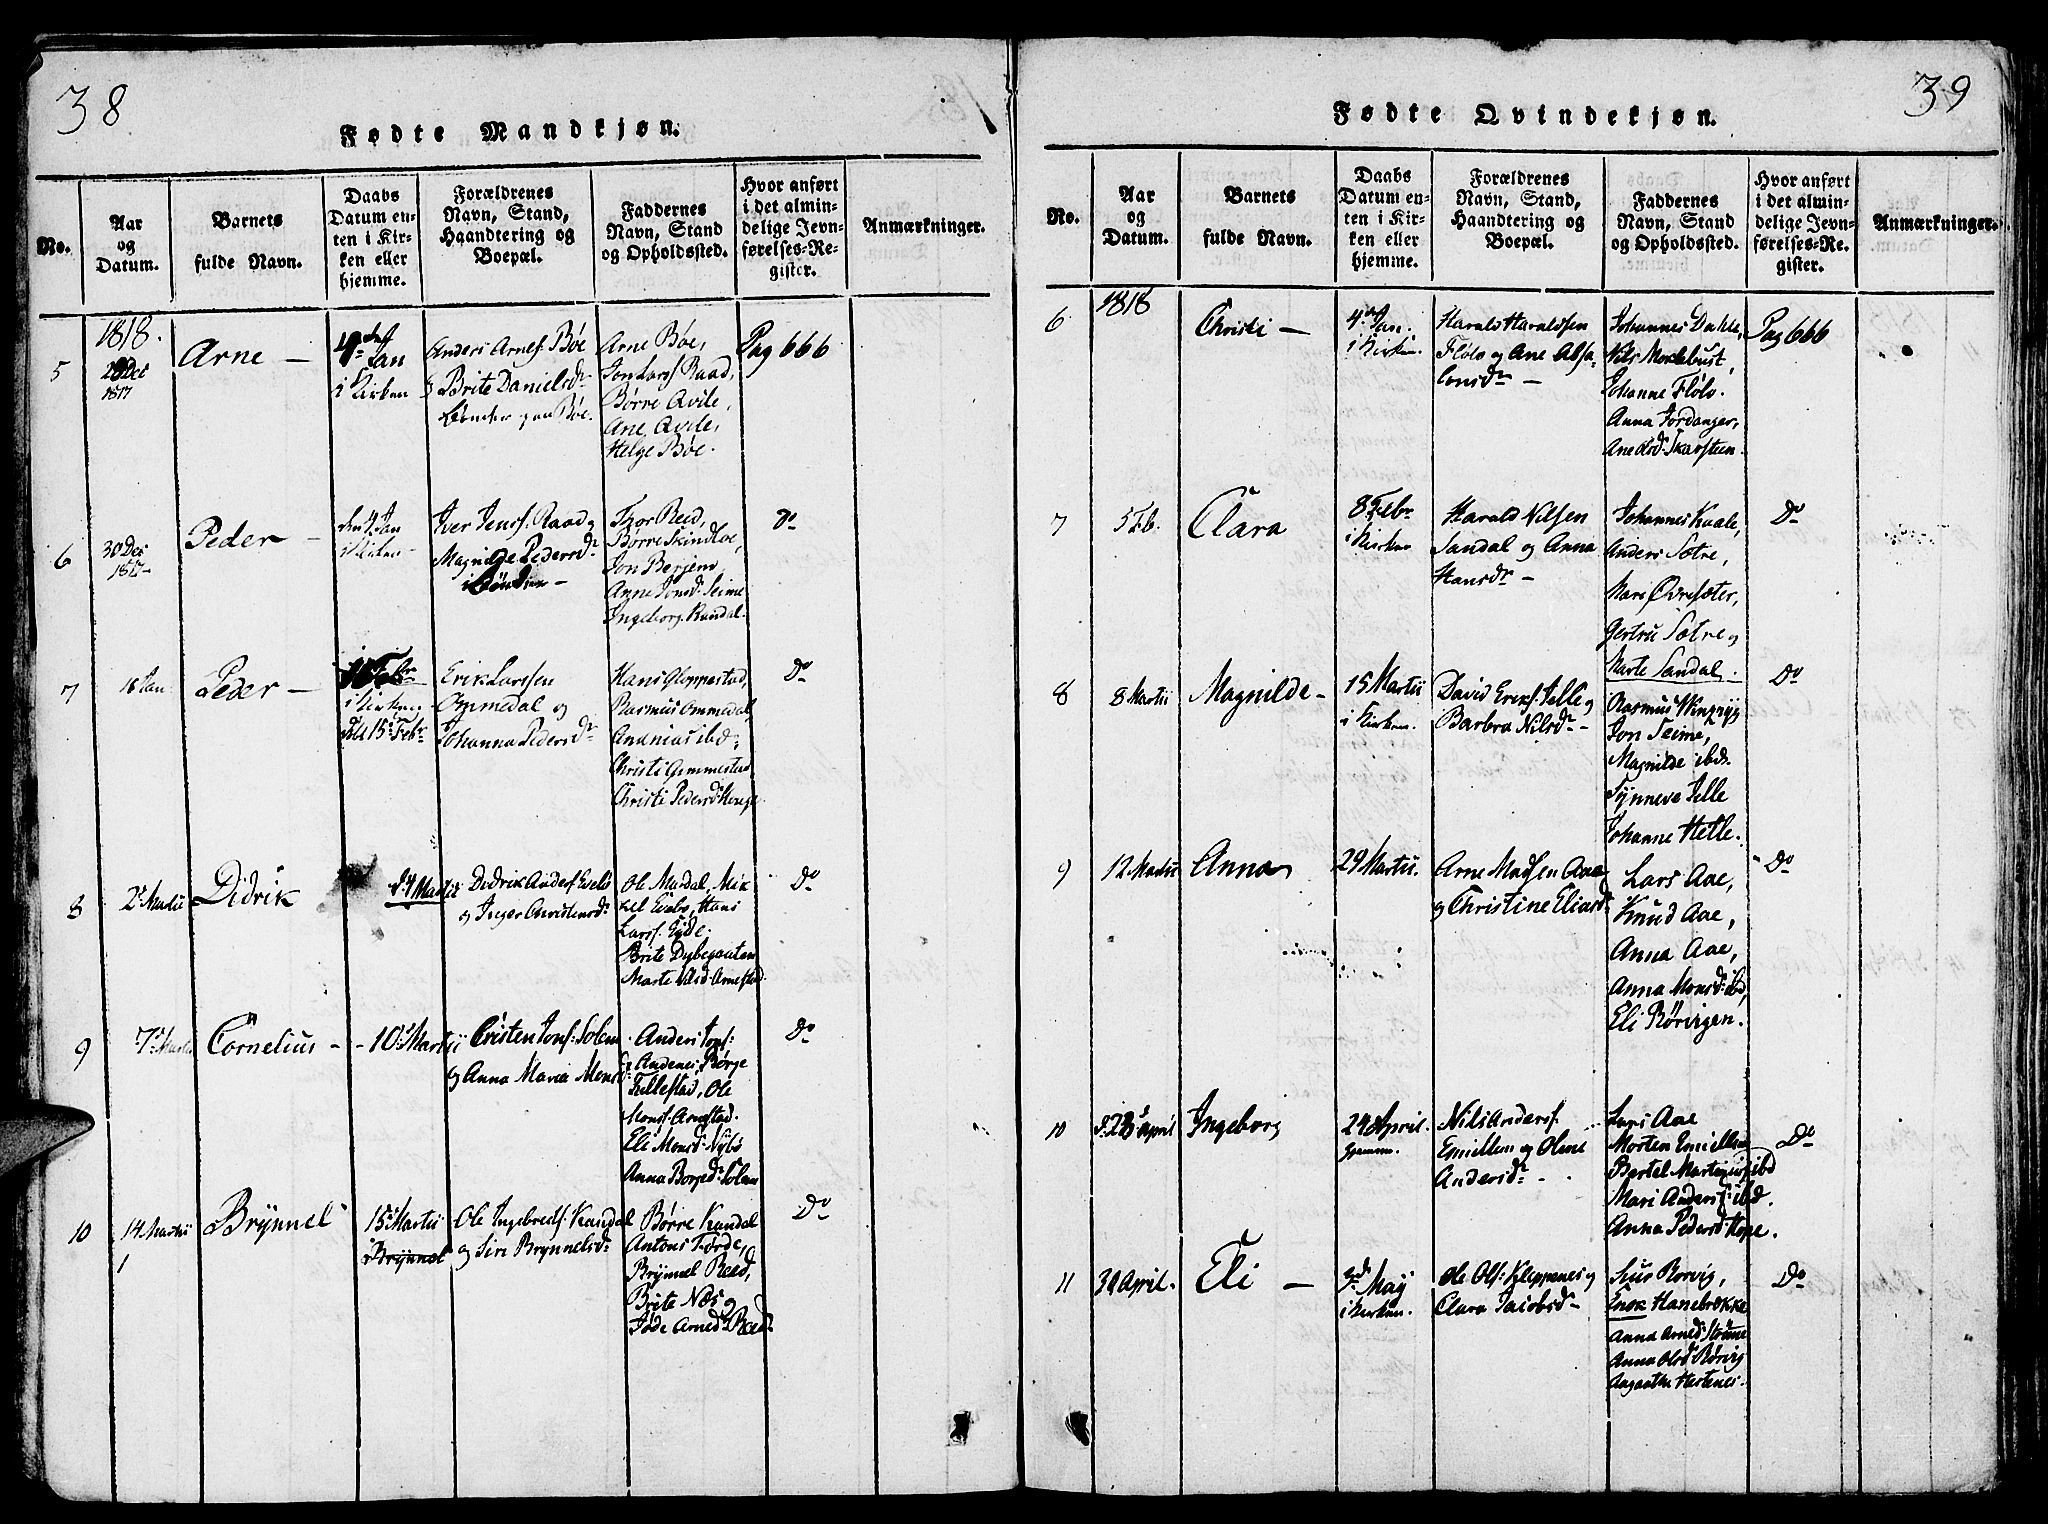 38
Fødte Mandkjøn.
No.
Aar
og
Datum.
Barnets
fulde Navn.
Daabs
Datum en-
ten i Kir-
ken eller
hjemme.
Forældrenes
Navn, Stand,
Haandtering og
Boepæl.
Faddernes
Navn, Stand
og Opholdssted.
Hvor anført
i det almin-
delige Jevn-
førelses-Re-
gister.
Anmærkninger.
1818.
5
Dec
1817
Arne —
Jan
i Kirken
Anders Arnes. Bøe
Brite Danielsdr
paa Bøe.
Arne Bøe,
Jon Larss Raad,
Børre Qvile,
Ane Qvile,
Helge Bøe.
Pag 666
6
30 Dec
1817
Peder —
den 4 Jan
i Kirken
Iver Jenss. Raad
Magnilde Pedersdr
Thor Reed,
Børre Skindloe,
Jon Berjem,
Anne Jonsd. Seime
Ingeborg Kandal.
Do
7
16 Jan
Peder —
Febr
i Kirken
15 Febr
Erik Larssen
Ommedal og
Johanna Pedersdr
Hans Gloppestad,
Rasmus Ommedal,
Ananias ibd:
Christi Gimmestad
Christi Pedersd. Henge
Do
8
2 Martii
Didrik
Martii
Didrik Anders. Evebø
og Inger Christensdr
Ole Mardal, Mik
kel Evebø, Hans
Larss. Eide.
Brite Dybegaaten
Marte Olsd. Arnestad.
Do
9
7 Martii
Cornelius -
10 Martii
Cristen Jons. Solem
og Anna Maria Monsd
Anders Jons:
Andenes, Børge
Tellestad, Ole
Mons. Arnestad.
Eli Monsd. Nybø
Anna Borged. Solem
Do
10
14 Martii
Brynnel
15 Martii
Brynnel
Ole Ingebrets. Kandal
og Siri Brynnelsdr
Børre Kandal
Antons Førde,
Brynnel Reed,
Brite Næs og
Jøde Arned. Reed
Do
39
Fødte Qvindekjøn.
No.
Aar
og
Datum.
Barnets
fulde Navn.
Daabs
Datum en-
ten i Kir-
ken eller
hjemme.
Forældrenes
Navn, Stand,
Haandtering og
Boepæl.
Faddernes
Navn, Stand
og Opholdssted.
Hvor anført
i det almin-
delige Jevn-
førelses-Re-
gister.
Anmærkninger.
6
1818
Christi —
4de Jan.
i Kirken.
Harald Haraldsen
Fløto og Ane Absa
lonsdr —
Johannes Dahle,
Nils Moldebust,
Johanne Fløto.
Anna Jordanger,
Ane Olsd. Skarsteen.
Pag 666
7
5 Feb.
Clara
8 Febr
i Kirken
Harald Nilsen
Sandal og Anna
Hansdr —
Johannes Kaale,
Anders Sætre,
Mari Øvresæter,
Gertru Sætre og
Marte Sandal.
Do
8
8 Martii
Magnilde -
15 Martii
i Kirken.
David Eriks. Telle og
Barbra Nilsdr —
Rasmus
Jon Seime,
Magnilde ibd.
Synneve Telle
Johanne Helle.
Do
9
12 Martii
Anna
29 Martii
Arne Madsen Aae
og Christine Eliasd
Lars Aae,
Knud Aae,
Anna Aae,
Anna Monsd: ibd,
Eli Rørvigen.
Do
10
April
Ingeborg
24 April.
hjemme.
Nils Anders.
Emiellem og Olene
Andersdr -
Lars Aae
Morten Emiellem
Bertel Martinus ibd
Mari Anders. ibd.
Anna Pedersd Hope.
Do
11
30 April.
Eli —
3de May
i Kirken.
Ole Ols: Kleppenes og
Clara Jacobsdr
Rorvig,
Enok Hanebrekke
Anna Arned. Strøme
Anna Olsd Rørvig
Aagaathe Hestenes.
Do